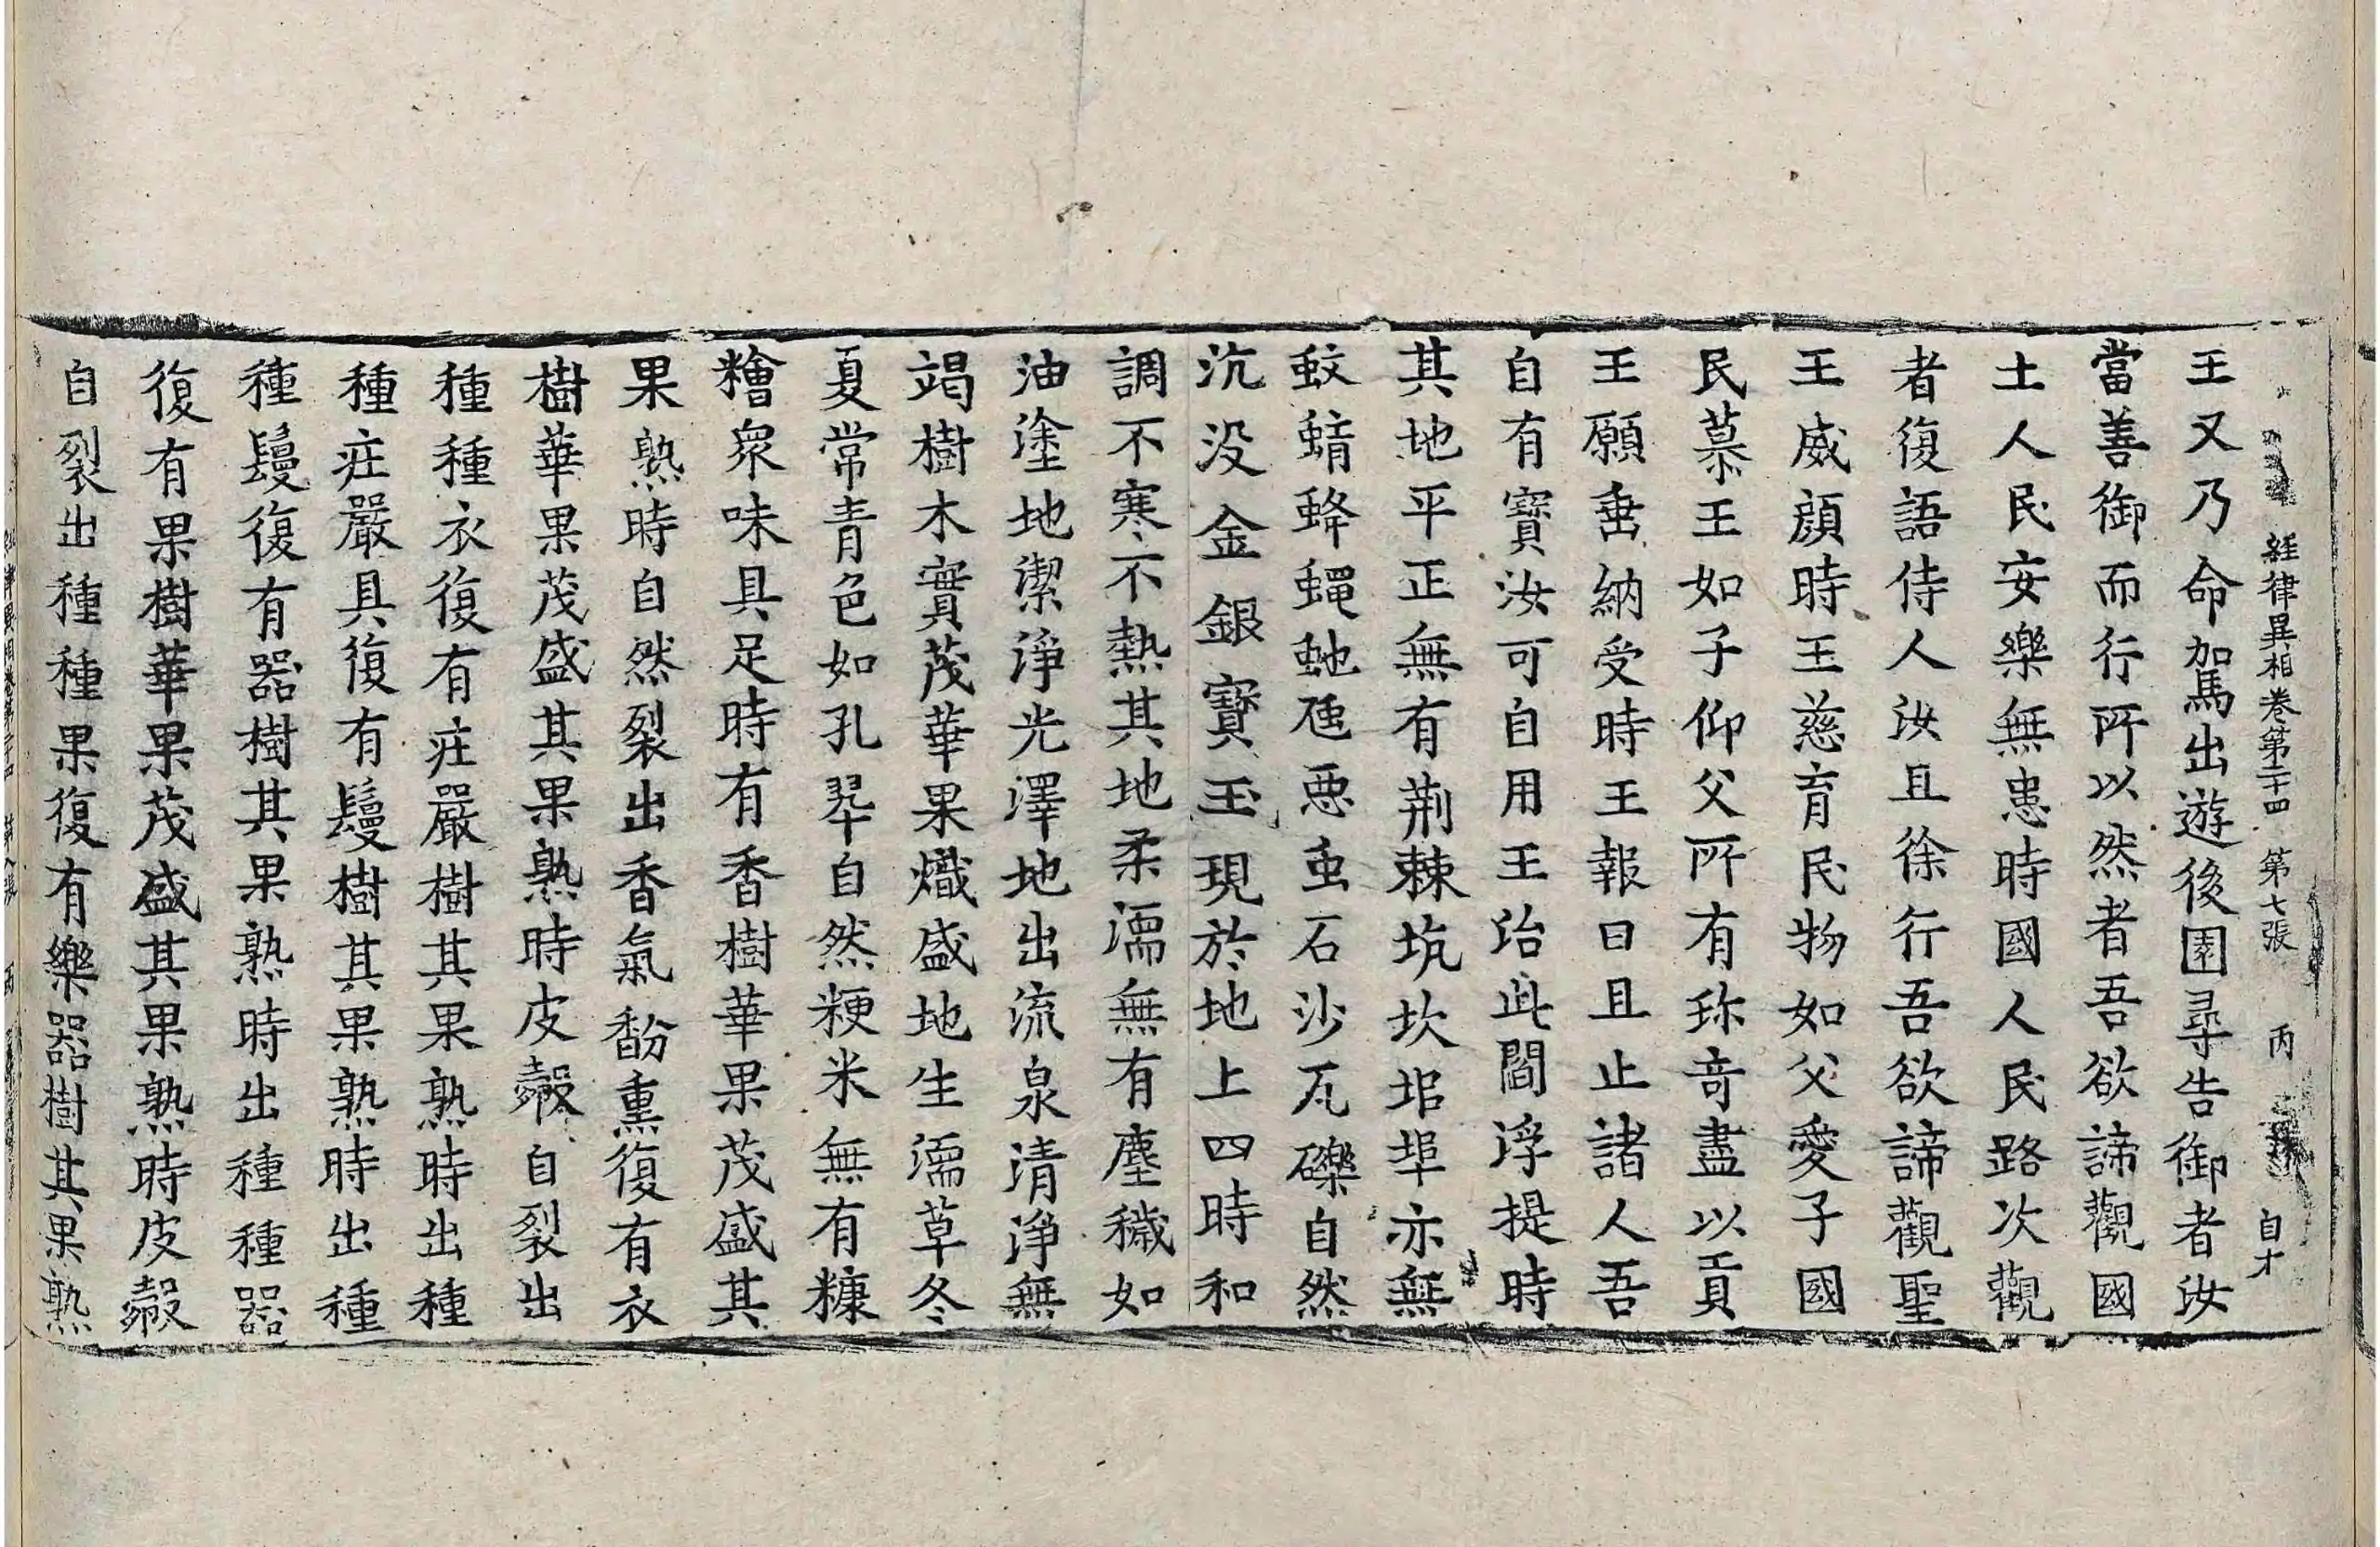 經律異相卷第二十四 第七張 丙 自才
王又乃命駕出遊後園尋告御者汝
當善御而行所以然者吾欲諦觀國
土人民安樂無患時國人民路次觀
者復語侍人汝且徐行吾欲諦觀聖
王威顏時王慈育民物如父愛子國
民慕王如子仰父所有珎奇盡以貢
王願垂納受時王報曰且止諸人吾
自有寶汝可自用王治此閻浮提時
其地平正無有荆棘坑坎塠埠亦無
蚊蜻蜂蠅虵虺惡虫石沙瓦礫自然
沉没金銀寶玉現於地上四時和
調不寒不熱其地柔濡無有塵穢如
油塗地潔淨光澤地出流泉清淨無
竭樹木實茂華果熾盛地生濡草冬
夏常青色如孔翠自然粳米無有糠
糩衆味具足時有香樹華果茂盛其
果熟時自然裂出香氣馚熏復有衣
樹華果茂盛其果熟時皮㲉自裂出
種種衣復有莊嚴樹其果熟時出種
種莊嚴具復有鬘樹其果熟時出種
種鬘復有器樹其果熟時出種種器
復有果樹華果茂盛其果熟時皮㲉
自裂出種種果復有樂器樹其果熟